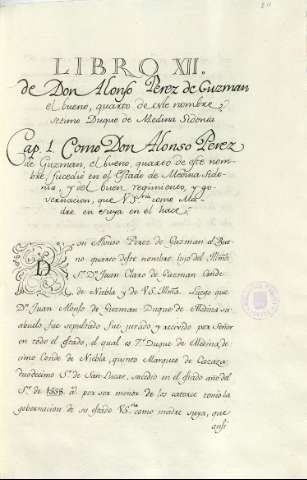 LIBRO XII.
de Don Alonso Perez de Guzman
el bueno, quarto de este nombre,
setimo Duque de Medina Sidonia
Cap. 1. Como Don Alonso Perez
de Guzman, el bueno, quarto de este nom-
bre, sucedio en el estado de Medina Sido-
nia, y del buen regimiento, y go-
vernacion, que V.S. como Ma-
dre en suya en el hace.
Don Alonso Perez de Guzman el Bue-
no quarto deste nombre hijo del
Sr. Dn. Juan Claro de Guzman Conde
de Niebla y de V.S. Luego que
Dn. Juan Alonso de Guzman Duque de Medina su
abuelo fue sepultado fue jurado y recivido por Señor
en todo el estado, el qual es 7º Duque de Medina, de
cimo Conde de Niebla, quinto Marques de Cazaza
duodecimo Sr. de San Lucar, sucedio en el estado año del
Sr. de 1558. el por ser menor de los catorce tomo la
gobernacion de su estado V.S. como madre suya, que